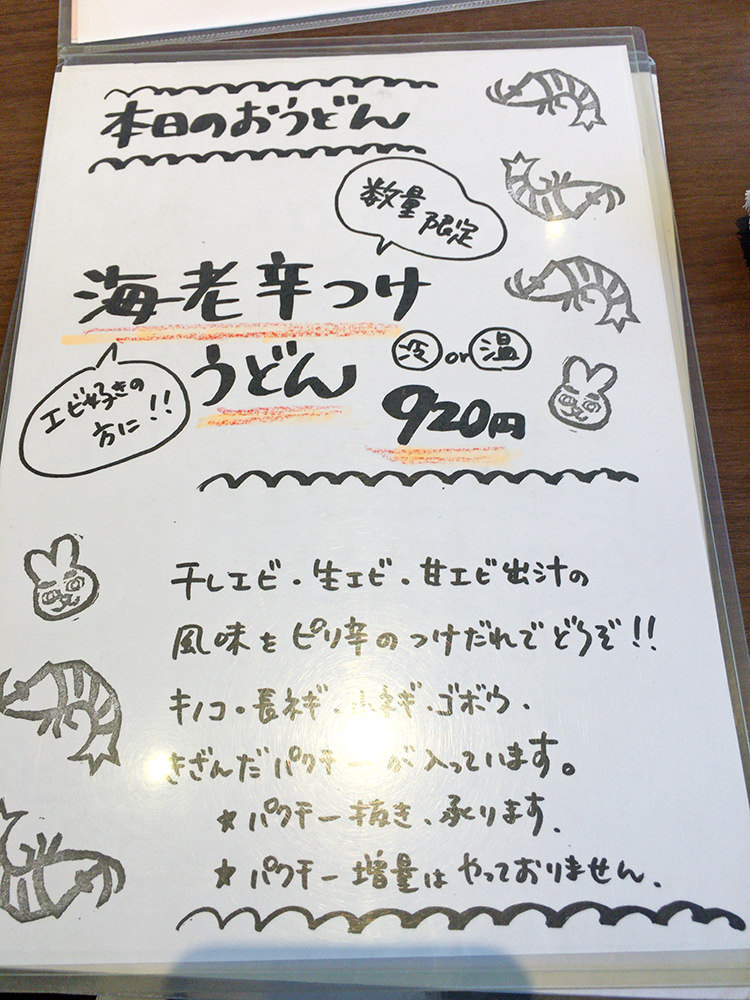 本日のおうどん
数量
限定
海老辛つけ
うどん
冷or温
エビ好きの
方に!!
920円
干しエビ・生エビ・甘エビ出汁の
風味をピリ辛のつけだれでどうぞ!!
キノコ・長ネギ・ネギ・ゴボウ・
きざんだパクチーが入っています。
★パクチー抜き、承ります.
★パクチー増量はやっておりません.